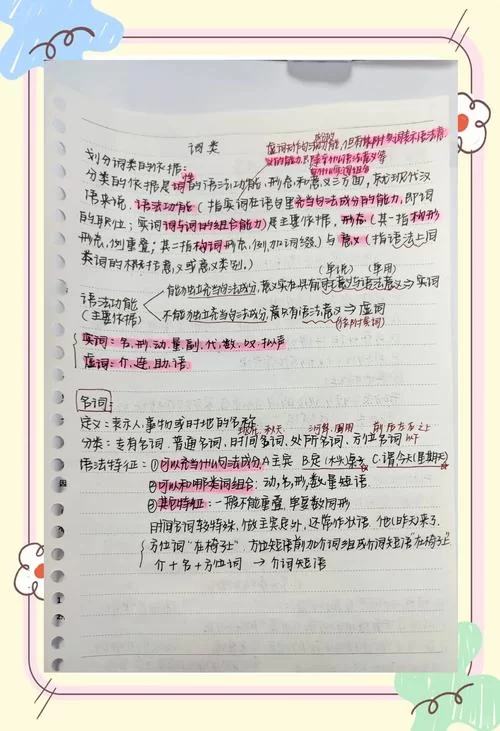 词类
虚词不作句法功能,但有依附实词表示语法意
义的能力,即
划分词类的依据:
分类的依据是词的语法功能、形态和意义三方面,就现代汉
语来说,语法功能(指实词在语句里充当句法成分的能力,即词
的职位;实词词与词的组合能力)是主要依据,形态(其一指构形
形态,例重叠;其二指构词形态,例,加词缀)与意义(指语法上同
类词的概括意义或意义类别。)
(单说) (单用)
语法功能
(主要依据)
能够独立充当句法成分,意义实在具有词汇意义与语法意义→实词
不能独立充当句法成分,意只有语法意义→虚词
(依附实词)
实词:名,形,动,量,副,代,数,叹,拟声
虚词:介,连,助,语
名词:
定义:表示人事物或时地的名称
现在,秋天 河岸、周围 前后左右上
分类:专有名词、普通名词、时间名词、处所名词、方位名词
语法特征:①可以充当什么句法成分:A主宾 B定(木头桌子) C谓今天(星期天)
②可以和哪类词组合:动,名,形,数量短语
③其它特征:一般不能重叠,单复数同形
时间名词较特殊,做主宾定外,还常作状语。他(昨天)来了。
方位词“在椅子上”,方位短语前加介词组成介词短语“在椅子上”
介+名+方位词 → 介词短语